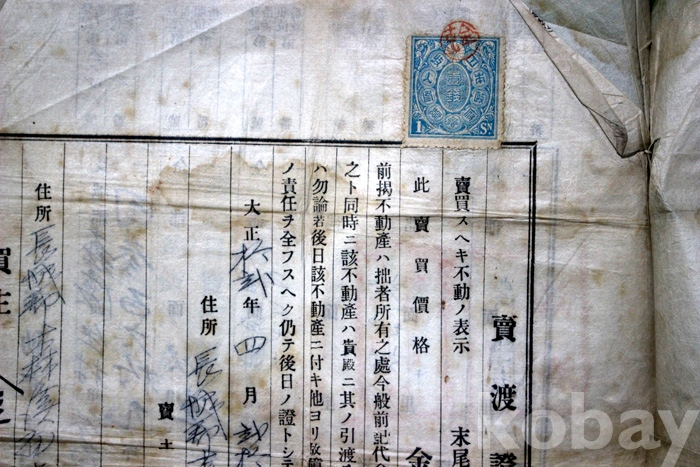 1 Sn
賣渡證
賣買スヘキ不動ノ表示 末尾
此賣買價格 金
前揭不動產ハ拙者所有之處今般前記代金
之ト同時ニ該不動產ハ貴殿ニ其ノ引渡
ハ勿論若後日該不動產ニ付キ他ヨリ故障
ノ責任ヲ全フスヘク仍テ後日ノ證トシテ
大正拾貳年四月貳拾
住所 長城郡
賣主
住所 長城郡
買主
kobay